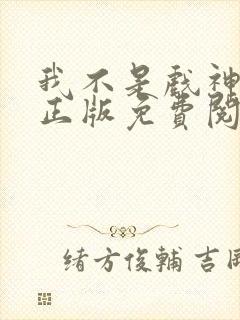 我不是戲神
正版免費閱
緒方俊輔 吉岡